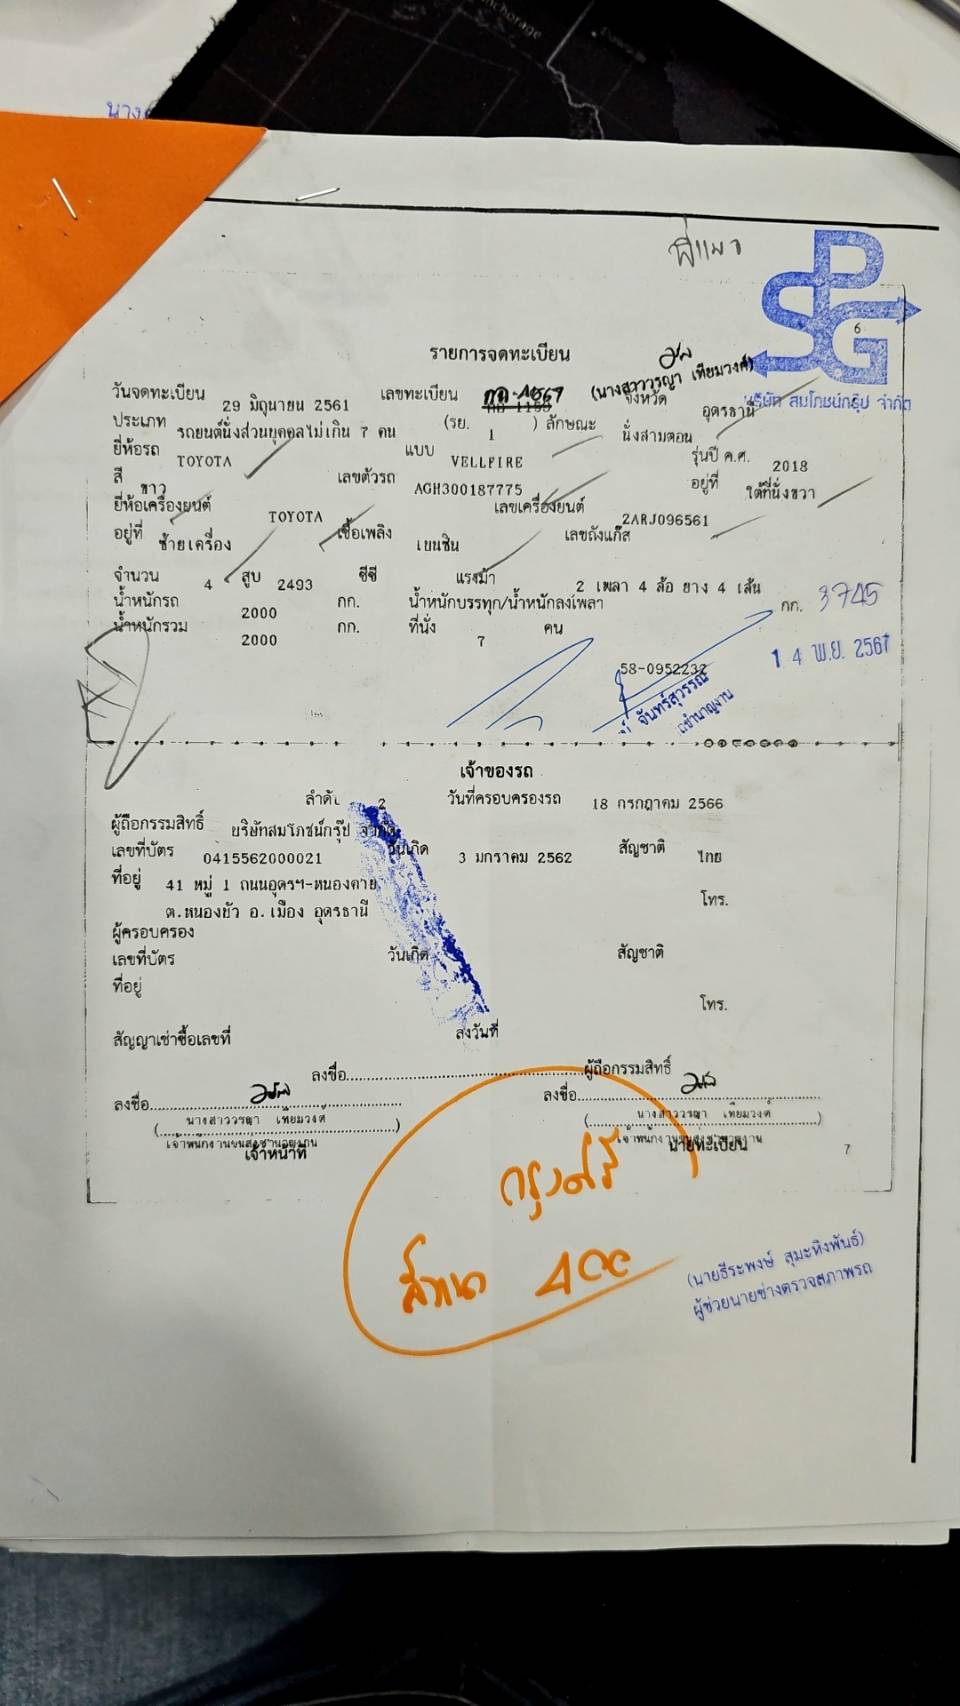 anchorage
พี่แมว
SPG
6
รายการจดทะเบียน
(นางสาววรญา เทียมวงศ์)
บริษัท สมโภชน์กรุ๊ป จำกัด
วันจดทะเบียน 29 มิถุนายน 2561 เลขทะเบียน จังหวัด อุดรธานี
ประเภท รถยนต์นั่งส่วนบุคคลไม่เกิน 7 คน (รย. 1 ) ลักษณะ นั่งสามตอน
ยี่ห้อรถ TOYOTA แบบ VELLFIRE รุ่นปี ค.ศ. 2018
สี ขาว เลขตัวรถ AGH300187775 อยู่ที่ ใต้ที่นั่งขวา
ยี่ห้อเครื่องยนต์ TOYOTA เลขเครื่องยนต์ 2ARJ096561
อยู่ที่ ซ้ายเครื่อง เชื้อเพลิง เบนซิน เลขถังแก๊ส
จำนวน 4 สูบ 2493 ซีซี แรงม้า 2 เพลา 4 ล้อ ยาง 4 เส้น
น้ำหนักรถ 2000 กก. น้ำหนักบรรทุก/น้ำหนักลงเพลา กก. 3745
น้ำหนักรวม 2000 กก. ที่นั่ง 7 คน
14 พ.ย. 2567
58-0952232
จันทร์สุวรรณ
เจ้าของรถ
ลำดับ 2 วันที่ครอบครองรถ 18 กรกฎาคม 2566
ผู้ถือกรรมสิทธิ์ บริษัทสมโภชน์กรุ๊ป จำกัด
เลขที่บัตร 0415562000021 วันเกิด 3 มกราคม 2562 สัญชาติ ไทย
ที่อยู่ 41 หมู่ 1 ถนนอุดรฯ-หนองคาย
โทร.
ต.หนองบัว อ.เมือง อุดรธานี
ผู้ครอบครอง
เลขที่บัตร วันเกิด สัญชาติ
ที่อยู่
โทร.
สัญญาเช่าซื้อเลขที่ ลงวันที่
ลงชื่อ ผู้ถือกรรมสิทธิ์
ลงชื่อ ลงชื่อ
(นางสาววรญา เทียมวงศ์) (นางสาววรญา เทียมวงศ์)
เจ้าพนักงานขนส่งชำนาญงาน เจ้าพนักงานขนส่งชำนาญงาน
เจ้าหน้าที่ นายทะเบียน
7
กรุงศรี
(นายธีระพงษ์ สุมะหิงพันธ์)
ผู้ช่วยนายช่างตรวจสภาพรถ